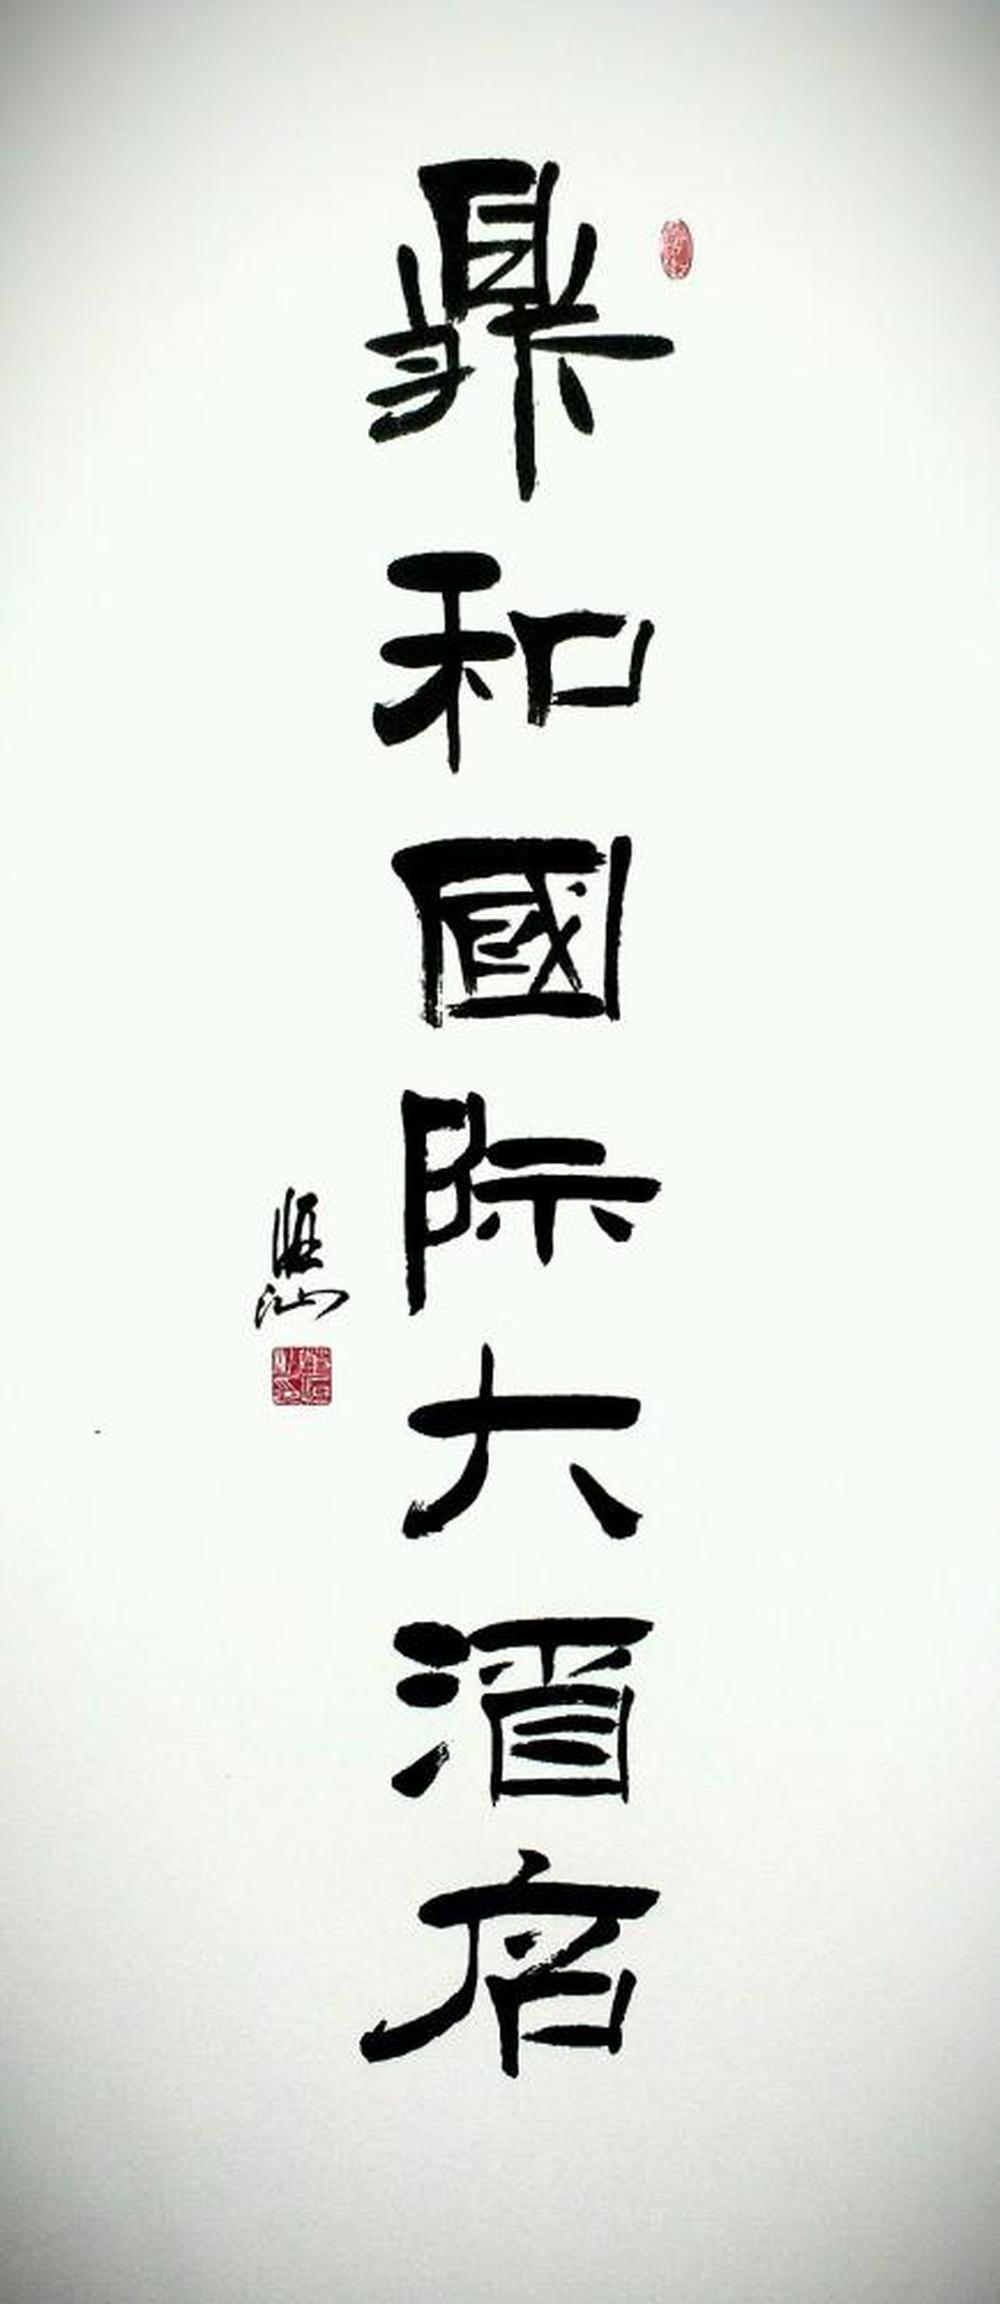 鼎和國际大酒店